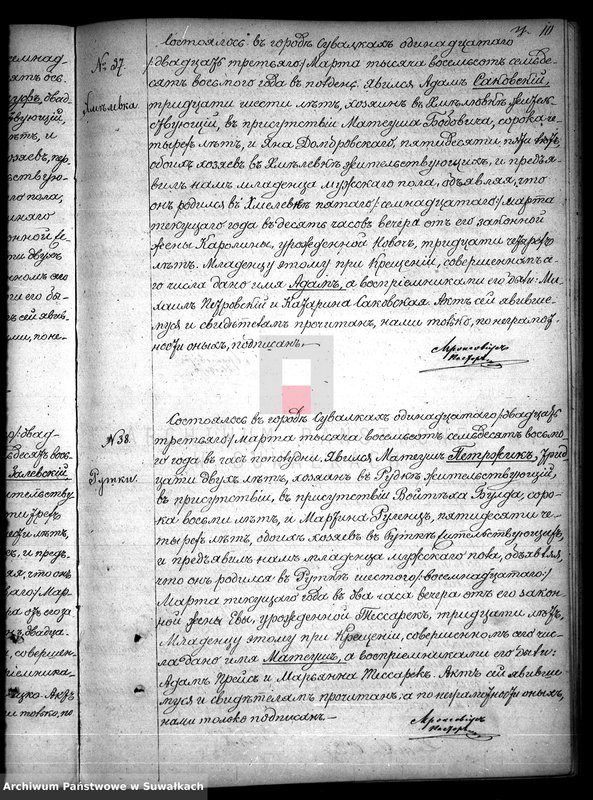 10
№ 37.
Хмѣлевка
Состоялось въ городѣ Сувалкахъ одинадцатаго
/двадцать третьяго/ Марта тысяча восемьсотъ семьде-
сятъ восьмого года въ полдень. Явился Адамъ Саковскій,
тридцати шести лѣтъ, хозяинъ въ Хмѣлювкѣ житель-
ствующій, въ присутствіи Матеуша Бобовича, сорока че-
тырехъ лѣтъ, и Яна Домбровскаго, пятидесяти пяти лѣтъ,
обоихъ хозяевъ въ Хмѣлевкѣ жительствующихъ, и предъя-
вилъ намъ младенца мужскаго пола, объявляя, что
онъ родился въ Хмелевкѣ пятаго /семнадцатаго/ Марта
текущаго года въ десять часовъ вечера отъ его законной
жены Каролины, урожденной Новокъ, тридцати четырехъ
лѣтъ. Младенцу этому при Крещеніи, совершенномъ се-
го числа дано имя Адамъ, а воспріемниками его были: Ми-
хаилъ Петровскій и Катарина Саковская. Актъ сей явивше-
муся и свидѣтелямъ прочитанъ, нами только, по неграмот-
ности оныхъ, подписанъ.
№ 38.
Рутки.
Состоялось въ городѣ Сувалкахъ одинадцатаго /двадцать
третьяго/ Марта тысяча восемьсотъ семьдесятъ восьмо-
го года въ часъ пополудни. Явился Матеушъ Петрожикъ, трид-
цати двухъ лѣтъ, хозяинъ въ Рудкѣ жительствующій,
въ присутствіи, въ присутствіи Войтѣха Бульда, соро-
ка восьми лѣтъ, и Мартина Ругеницъ, пятидесяти че-
тырехъ лѣтъ, обоихъ хозяевъ въ Руткѣ жительствующихъ,
и предъявилъ намъ младенца мужскаго пола, объявляя,
что онъ родился въ Руткѣ шестого /восемнадцатаго/
Марта текущаго года въ два часа вечера отъ его закон-
ной жены Евы, урожденной Тессарекъ, тридцати лѣтъ.
Младенцу этому при Крещеніи, совершенномъ сего чис-
ла дано имя Матеушъ, а воспріемниками его были:
Адамъ Прейсъ и Марьянна Тиссарекъ. Актъ сей явивше-
муся и свидѣтелямъ прочитанъ, а по неграмотности оныхъ,
нами только подписанъ.
Archiwum Państwowe w Suwałkach